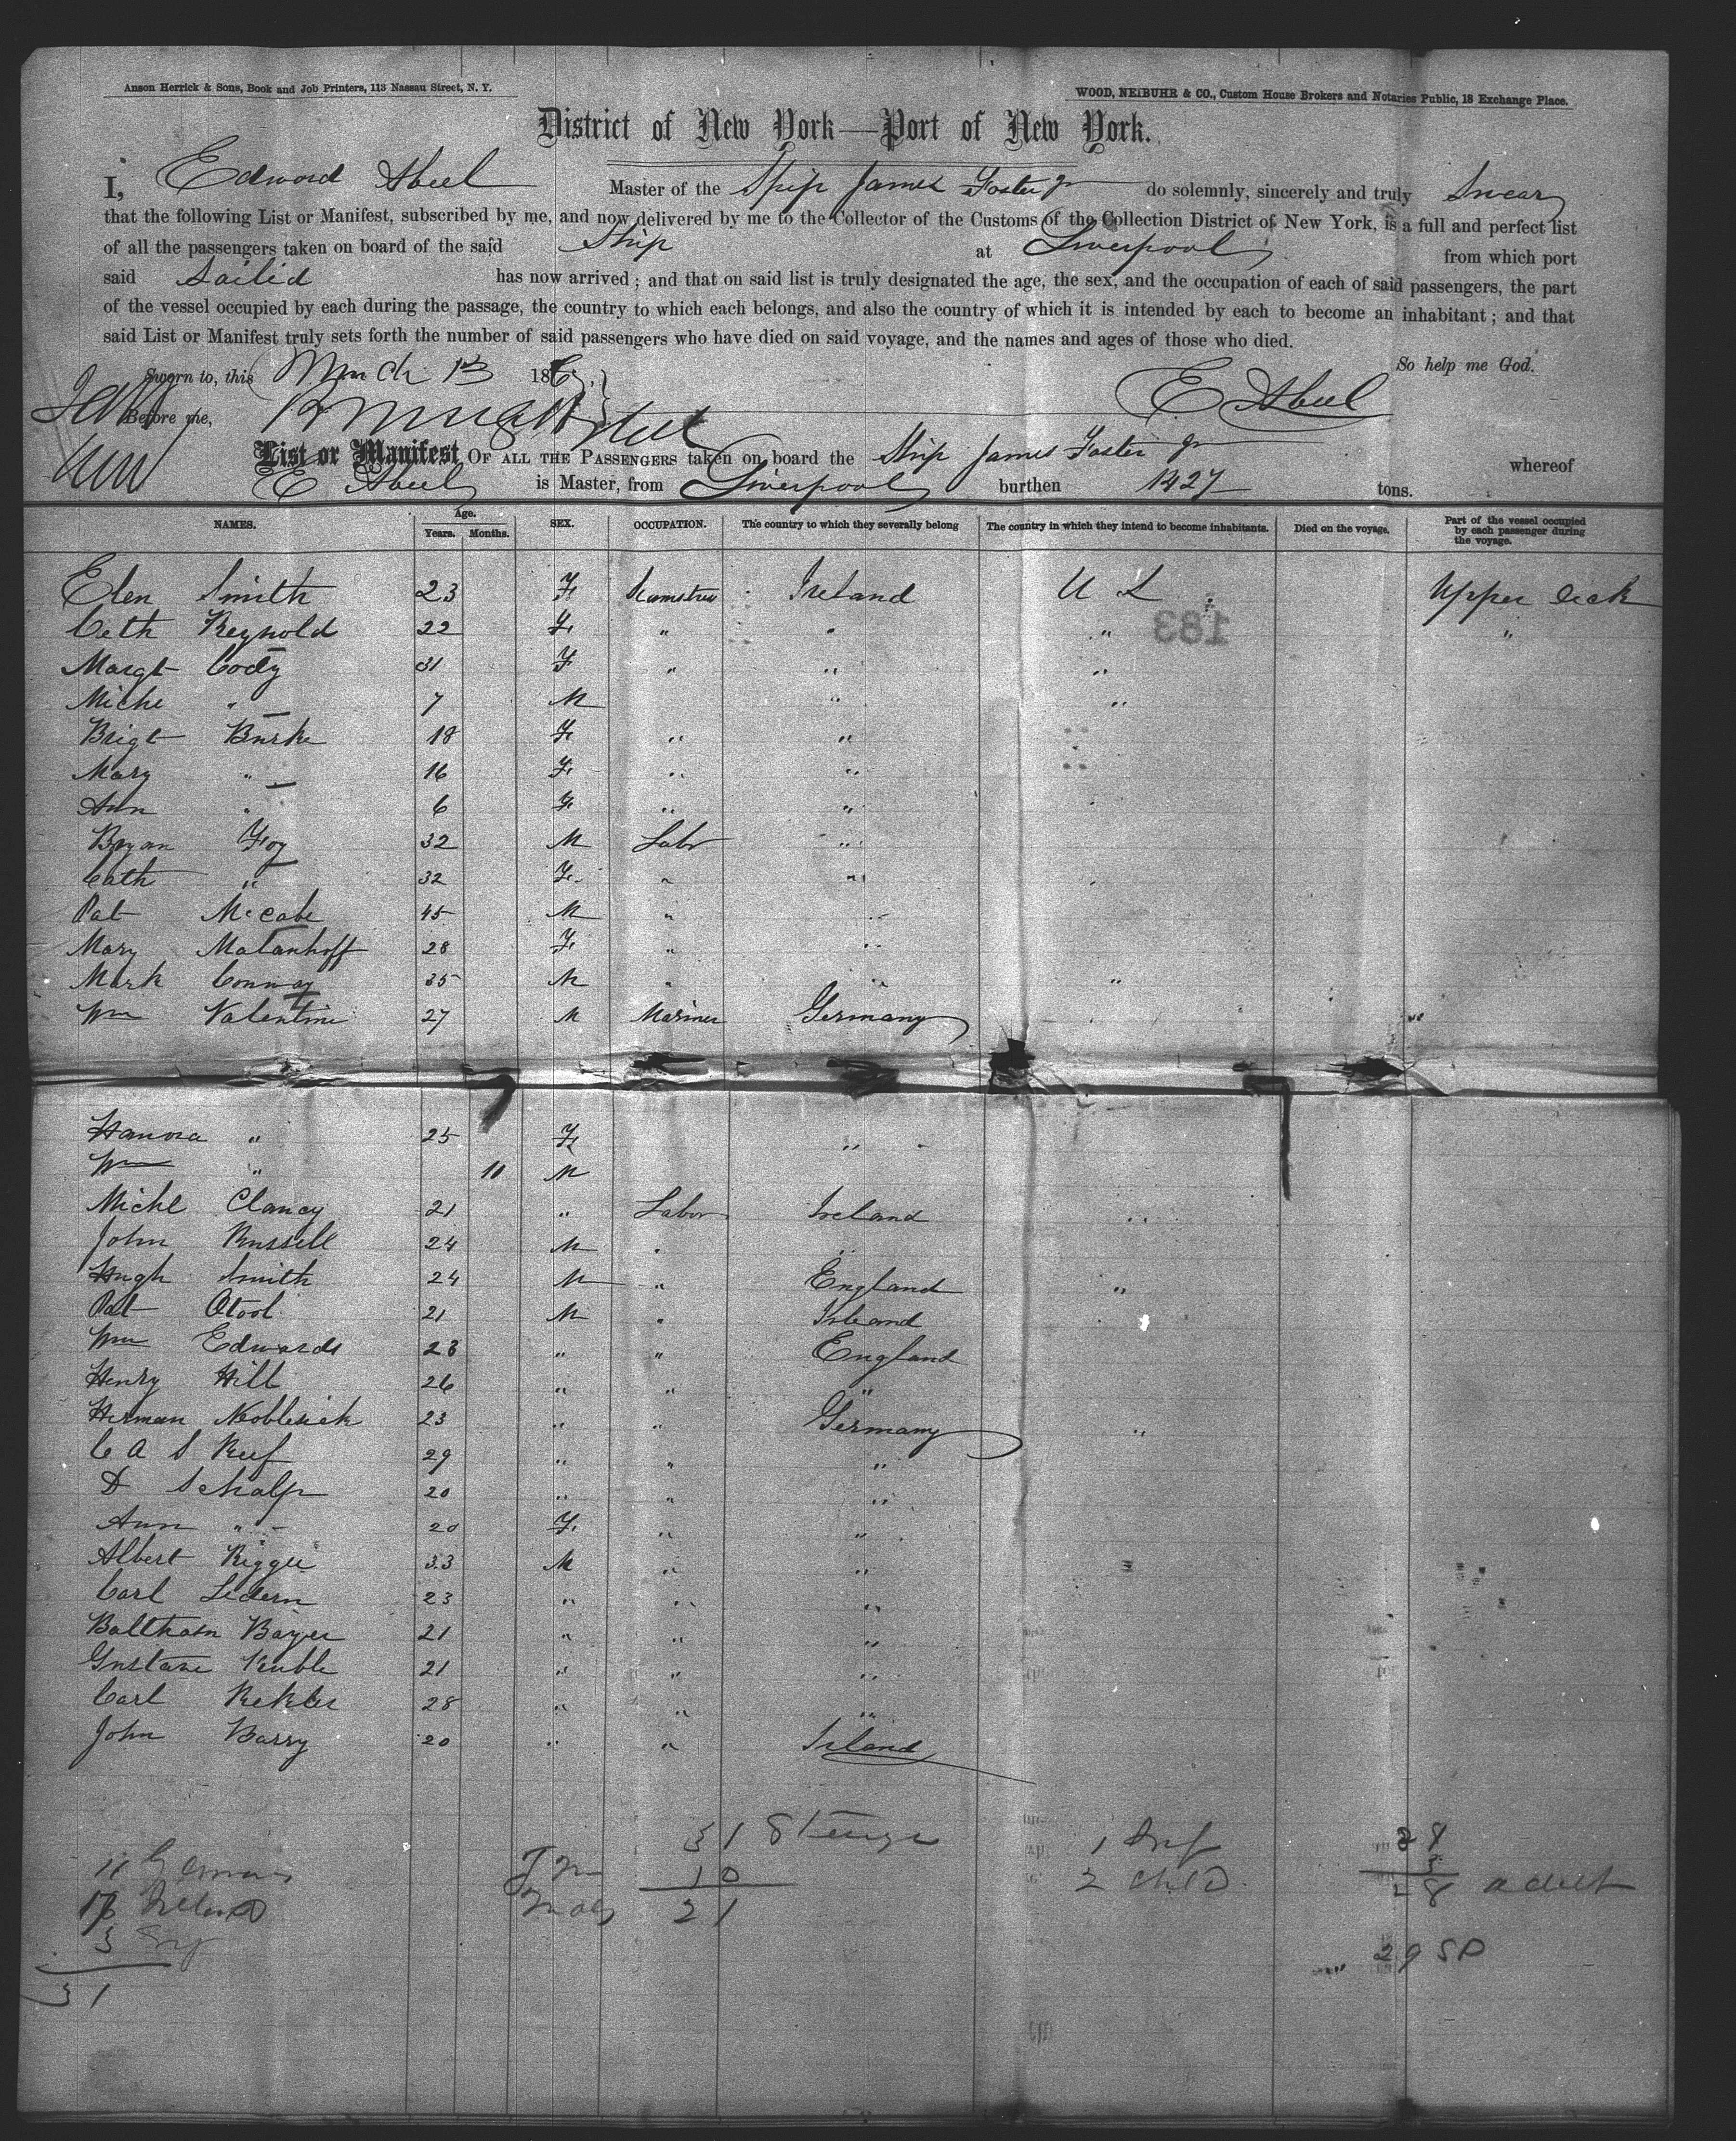 Anson Herrick & Sons, Book and Job Printers, 113 Nassau Street, N. Y.
WOOD, NEIBUHR & CO., Custom House Brokers and Notaries Public, 18 Exchange Place.
District of New York—Port of New York.
I, Edward Abeel Master of the Ship James Foster Jr do solemnly, sincerely and truly Swear
that the following List or Manifest, subscribed by me, and now delivered by me to the Collector of the Customs of the Collection District of New York, is a full and perfect list
of all the passengers taken on board of the said Ship at Liverpool from which port
said Sailed has now arrived; and that on said list is truly designated the age, the sex, and the occupation of each of said passengers, the part
of the vessel occupied by each during the passage, the country to which each belongs, and also the country of which it is intended by each to become an inhabitant; and that
said List or Manifest truly sets forth the number of said passengers who have died on said voyage, and the names and ages of those who died.
So help me God.
Sworn to, this March 13 186
Before me,
E Abeel
List or Manifest OF ALL THE PASSENGERS taken on board the Ship James Foster Jr whereof
E Abeel is Master, from Liverpool burthen 1427 tons.
NAMES. Age. Years. Months. SEX. OCCUPATION. The country to which they severally belong The country in which they intend to become inhabitants. Died on the voyage. Part of the vessel occupied by each passenger during the voyage.
Elen Smith 23 F Ireland U S Upper deck
183
Cath Reynold 22 F " " " "
Margt Cody 31 F " " "
Miche " 7 M " "
Brigt Burke 18 F " "
Mary " 16 F " "
Ann " 6 F " "
Bryan Foy 32 M Labr "
Cath " 32 F " "
Pat McCabe 45 M " "
Mary Matanhoff 28 F " "
Mark Conway 35 M " " "
Wm Valentine 27 M Mariner Germany "
Hanora " 25 F "
Wm " 10 M
Michl Clancy 21 " Labor Ireland "
John Russell 24 M " "
Hugh Smith 24 M " England "
Pat Otool 21 M " Irleand
Wm Edwards 23 " " England
Henry Hill 26 " " "
Herman 23 " " Germany "
C A S Reef 29 " " "
D Schalp 20 " " "
Ann " 20 F " "
Albert Riggee 33 M " "
Carl Ledern 23 " " "
Balthasn Bayer 21 " " "
Gustave 21 " " "
Carl 28 " " "
John Barry 20 " " Irland
31 Steerge 1 Inf 28
11 German 10 2 child 28 adult
Ireland Mals 21
3 Eng 29 SP
31